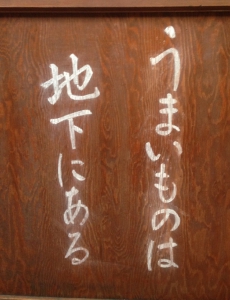 うまいものは
地下にある